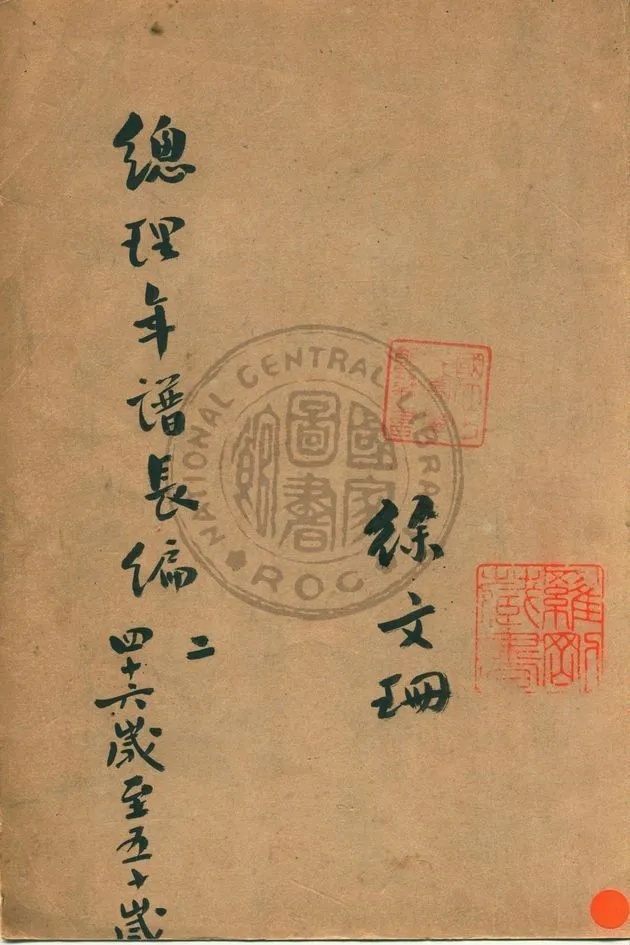 羅剛藏書
徐文珊
總理年譜長編
二
四十六歲至五十歲
NATIONAL CENTRAL LIBRARY
國家圖書館
ROC